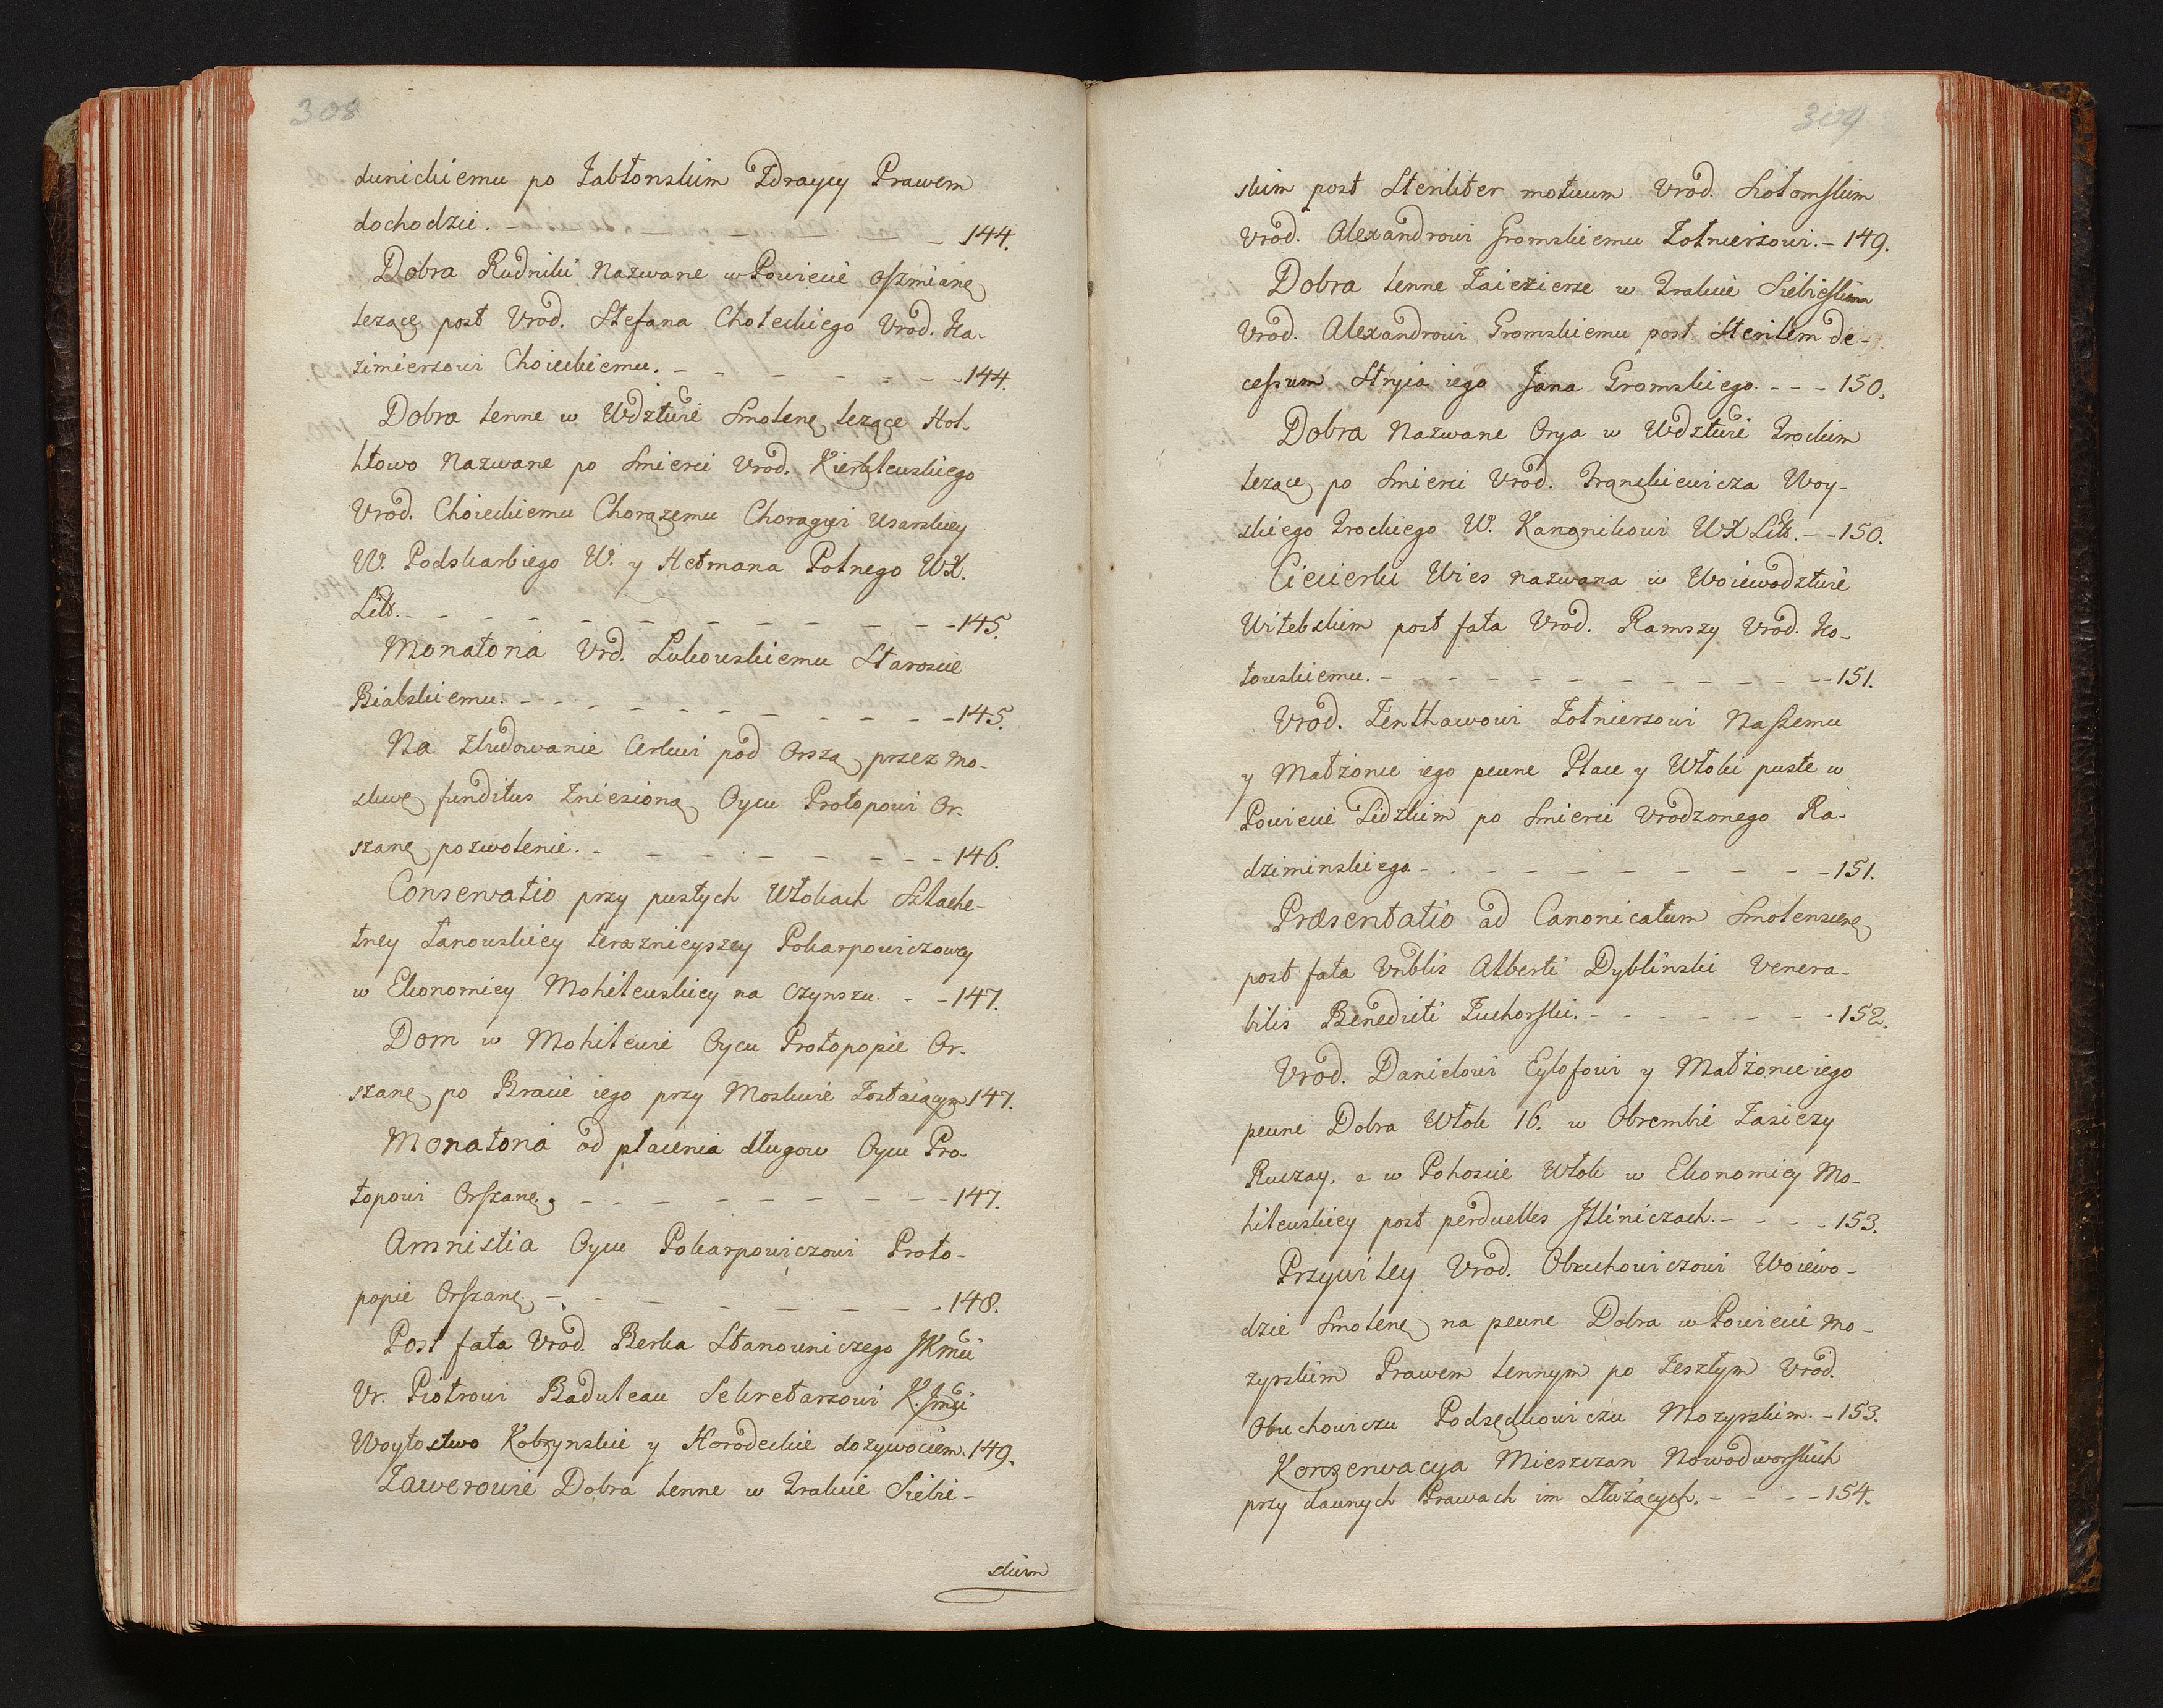 308
dunickiemu po Jabłonskim Zdraycy Prawem
dochodzic. - - - - - 144.
Dobra Rudniki Nazwane w Powiecie Oszmianę
leząсе post Vrod. Stefana Choteckiego Vrod. Ka-
zimierzowi Choieckiemu. - - - - - - 144.
Dobra lenne w Wdztwie Smolenę lezące Hol-
htowo Nazwane po Smierci Vrod. Kierbłewskiego
Vrod. Choieckiemu Chorązemu Choragwi Usarskiey
W. Podskarbiego W. y Hetmana Polnego WX.
Litt. - - - - - - - - - - - 145.
Moratoria Vrd. Lukowskiemu Staroscie
Bialskiemu. - - - - - - - - - - 145.
Na Zbudowanie Cerkwi pod Orszą przez Mo-
skwę funditus Zniesioną Oycu Protopowi Or-
szanę pozwolenie. - - - - - - - - 146.
Conservatio przy pustych Włokach Szlache-
tney Łanowskiey teraznieyszey Pokarpowiczowey
w Ekonomiey Mohilewskiey na czynszu. - - 147.
Dom w Mohilewie Oycu Protopopie Or-
szanę po Bracie iego przy Moskwie Zostaiącym 147.
Moratoria od płacenia długow Oycu Pro-
topowi Orszanę, - - - - - - - - - 147.
Amnistia Oycu Pokarpowiczowi Proto-
popie Orszanę. - - - - - - - - 148.
Post fata Vrod. Berka Stanowniczego JKmći
Vr. Piotrowi Baduleau Sekretarzowi K. Jmći
Woytostwo Kobrynskie y Horodeckie dozywociem. 149.
Zawerowie Dobra lenne w Trakcie Siebie-
skim
309
skim post Steriliter motuum Vrod. Siołomskim
Vrod. Alexandrowi Gromskiemu Zołnierzowi. - 149.
Dobra lenne Zaiezierze w Trakcie Siebieskim
Vrod. Alexandrowi Gromskiemu post Sterilem de-
cessum Stryia iego Jana Gromskiego. - - - 150.
Dobra Nazwane Orya w Wdztwie Trockim
lezące po Smierci Vrod. Franckiewicza Woy-
skiego Trockiego W. Kanonikowi WX Litt. - - 150.
Ciecierki Wies nazwana w Woiewodztwie
Witebskim post fata Vrod. Ramszy Vrod. Ko-
towskiemu. - - - - - - - - - - - - 151.
Vrod. Zenthawowi Zołnierzowi Naszemu
y Małzonce iego pewne Place y Włoki puste w
Powiecie Lidzkim po Smierci Vrodzonego Ra-
dziminskiego - - - - - - - - - - 151.
Præsentatio ad Canonicatum Smolenscenę
post fata Vnblis Alberti Dyblinski Venera-
bilis Benedicti Zuchorski. - - - - - - - 152.
Vrod. Danielowi Eylofowi y Małżonce iego
pewne Dobra Włok 16. w Obrembie Zasiezy
Ruczay, a w Pohoscie Włok w Ekonomiey Mo-
hilewskiey post perduelles Jlliniczach. - - - - 153.
Przywiley Vrod. Obuchowiczowi Woiewo-
dzie Smolenę na pewne Dobra w Powiecie Mo-
zyrskim Prawem lennym po Zeszłym Vrod.
Obuchowiczu Podsędkowiczu Mozyrskim. - 153.
Konzerwacya Mieszczan Nowodworskich
przy dawnych Prawach im Służących. - - - - 154.